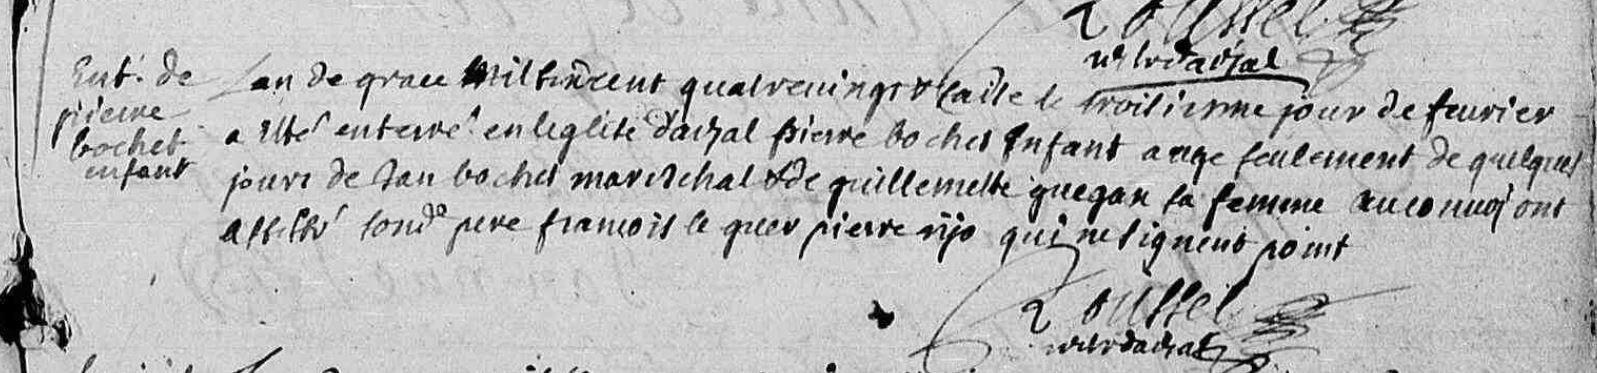 Roussel
r de dachal
Ent. de
pierre
bochet
enfant
Lan de grace Mil sixcent quatrevingt & saise le troisiesme jour de feurier
a esté enterré en leglise dachal pierre bochet Enfant aage seulement de quelques
jours de Jan bochet mareschal & de guillemette guegan sa femme au conuoy ont
assisté sond pere francois le quer pierre rijo qui ne signent point
Roussel
dachal